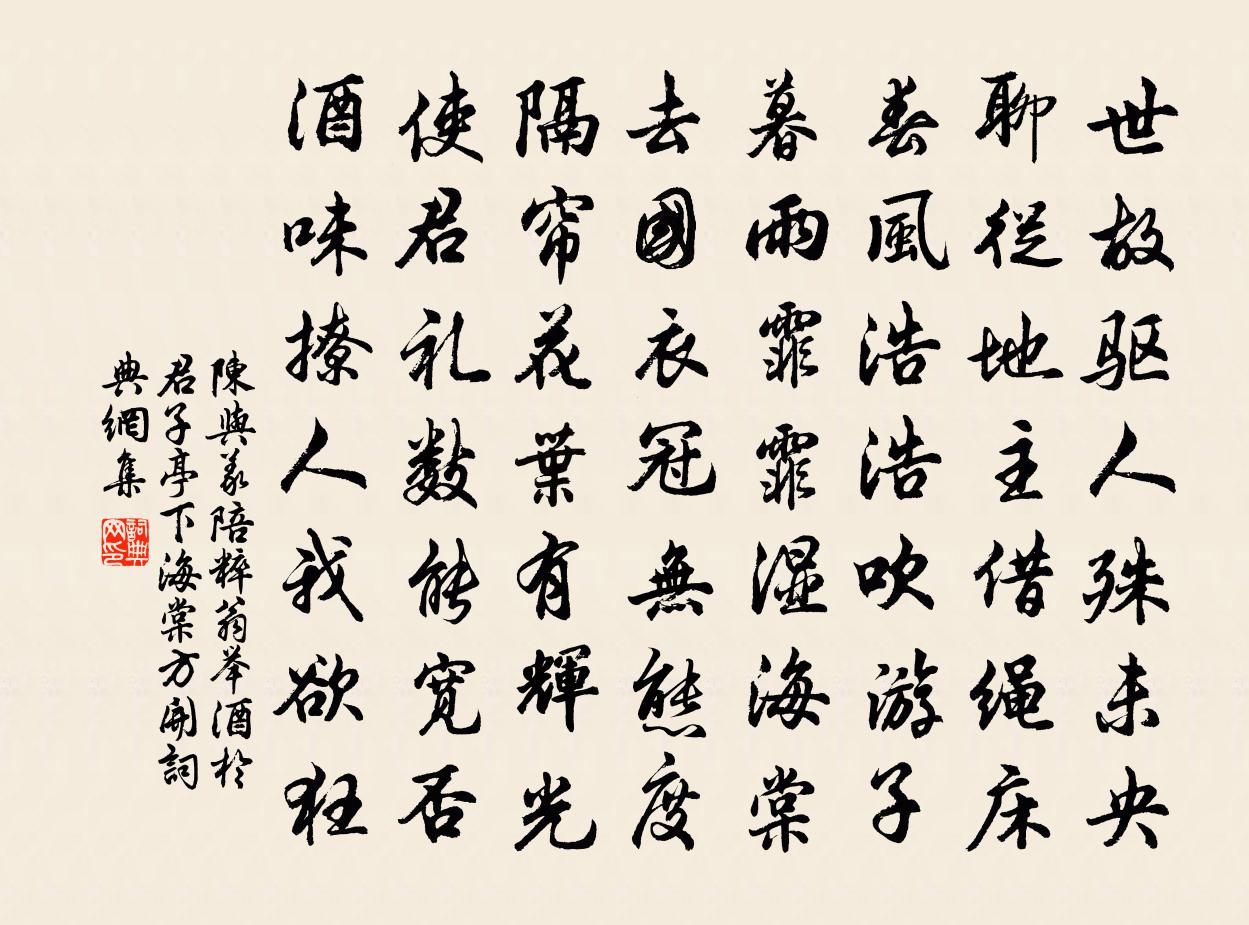 世故驱人殊未央
聊從地主借绳床
春風浩浩吹游子
暮雨霏霏湿海棠
去國衣冠無態度
隔帘花葉有輝光
使君礼數能宽否
酒味撩人我欲狂
陳與義陪粹翁举酒於
君子亭下海棠方開詞
典網集
詞典
网印